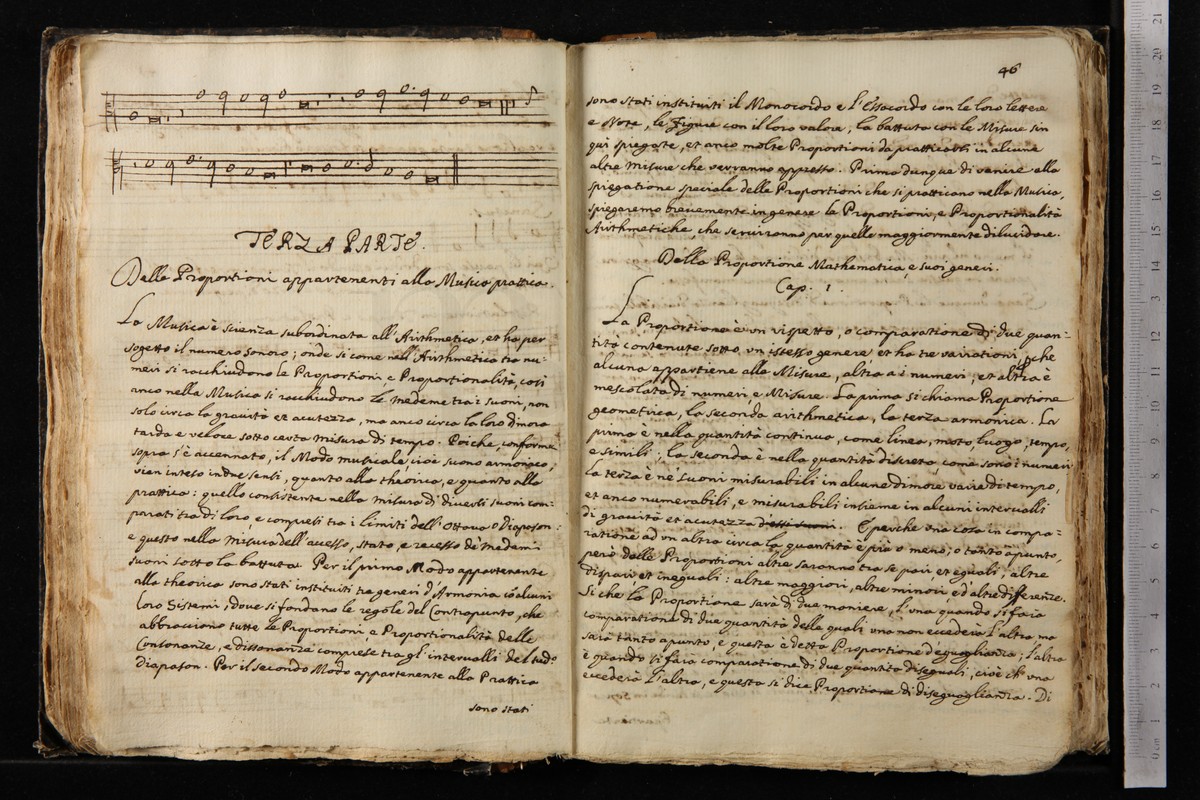 TERZA PARTE.
Delle Proportioni appartenenti alla Musica prattica.
La Musica è scienza subordinata all'Arithmetica, et hà per
sogetto il numero sonoro; onde si come nell'Arithmetica trà nu-
meri si racchiudono le Proportioni, e Proportionalità, così
anco nella Musica si racchiudono le medeme trà i suoni, non
solo circa la gravità et acutezza, ma anco circa la loro dimora
tarda e veloce sotto certa misura di tempo. Poiche, conforme
sopra s'è accennato, il Modo musicale, cioè suono armonico,
vien inteso in due sensi, quanto alla theorica, e quanto alla
prattica: quello consistente nella misura di diversi suoni com-
parati tra di loro, e compresi tra i limiti dell'Ottava ò Diapason:
e questo nella misura dell'acesso, stato, e recesso de medemi
suoni sotto la battuta. Per il primo Modo appartenente
alla theorica sono stati instituiti tre generi d'Armonia cō alcuni
loro Sistemi, dove si fondano le regole del Contrapunto, che
abbracciano tutte le Proportioni, e Proportionalità delle
Consonanze, e dissonanze comprese tra gl'intervalli del sud.o
diapason. Per il secondo Modo appartenente alla Prattica
sono stati
46
sono stati instituiti il Monocordo e l'Essacordo con le loro lettere
e Note, le Figure con il loro valore, la battuta con le Misure sin
quì spiegate, et anco molte Proportioni da pratticarsi in alcune
altre misure che verranno appresso. Prima dunque di venire alla
spiegatione speciale delle Proportioni che si pratticano nella Musica,
spiegaremo brevemente in genere le Proportioni, e Proportionalità
Arithmetiche, che serviranno per quelle maggiormente dilucidare.
Della Proportione Mathematica, e suoi generi.
Cap. 1.
La Proportione è un rispetto, o comparatione di due quan-
tità contenute sotto un istesso genere, et ha tre variationi, pche
alcuna appartiene alle Misure, altra a i numeri, et altra è
mescolata di numeri e Misure. La prima si chiama Proportione
geometrica, la seconda arithmetica, la terza armonica. La
prima è nella quantità continua, come linea, moto, luogo, tempo,
e simili; la seconda è nella quantità discreta come sono i numeri
la terza è ne' suoni misurabili in alcune dimore varie di tempo,
et anco numerabili, e misurabili insieme in alcuni intervalli
di gravità et acutezza d'essi suoni. E perche una cosa in compa-
ratione ad un altra circa la quantità è più o meno, o tanto apunto,
però delle Proportioni altre saranno tra se pari, et eguali, altre
dispari, et ineguali: altre maggiori, altre minori ed'altre differenze.
Si che la Proportione sarà di due maniere, l'una quando si farà
comparatione di due quantità delle quali una non eccederà l'altra, ma
sarà tanto apunto, e questa è detta Proportione d'eguaglianza; l'altra
è quando si farà comparatione di due quantità diseguali, cioè ch'una
eccederà l'altra, e questa si dice Proportione di diseguaglianza. Di